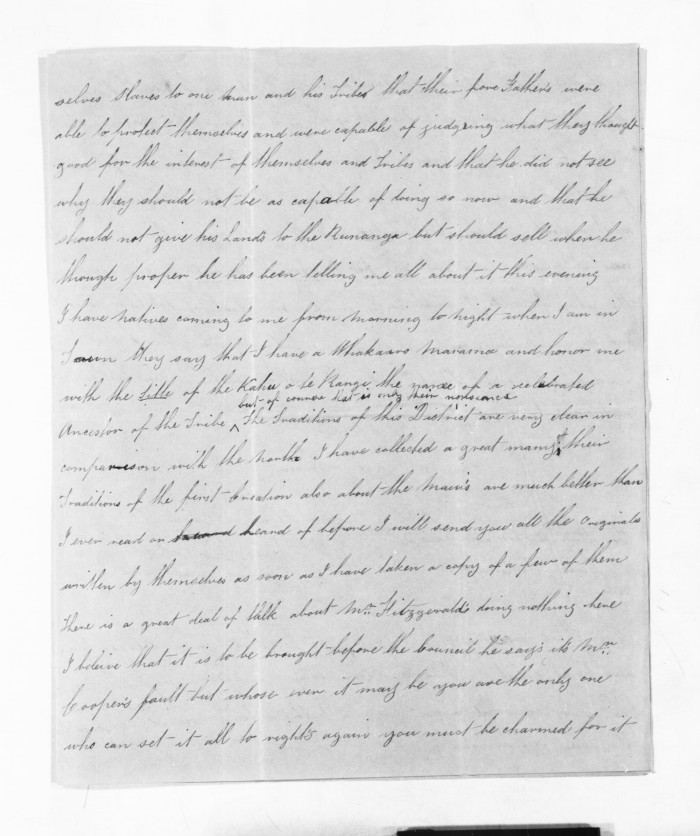 selves slaves to one man and his Tribes that their fore Father's were
able to protect themselves and were capable of judgeing what they thought
good for the interest of themselves and Tribes and that he did not see
why they should not be as capable of doing so now and that he
should not give his Lands to the Runanga but should sell when he
though proper he has been telling me all about it this evening
I have natives coming to me from morning to night when I am in
Town they say that I have a Whakaaro marama and honor me
with the title of the Kahu o te Rangi, the name of a celebrated
but of course that is only their nonsense
Ancestor of the Tribe ^ The Traditions of this District are very clear in
comparison with the north I have collected a great many, their
Traditions of the first Creation also about the Maui's are much better than
I ever read or heard of before I will send you all the Originals
written by themselves as soon as I have taken a copy of a few of them
There is a great deal of talk about Mr. Fitzgerald's doing nothing here
I beleive that it is to be brought before the Council he say's it's Mr.
Cooper's fault but whose ever it may be you are the only one
who can set it all to right's again you must be charmed for it